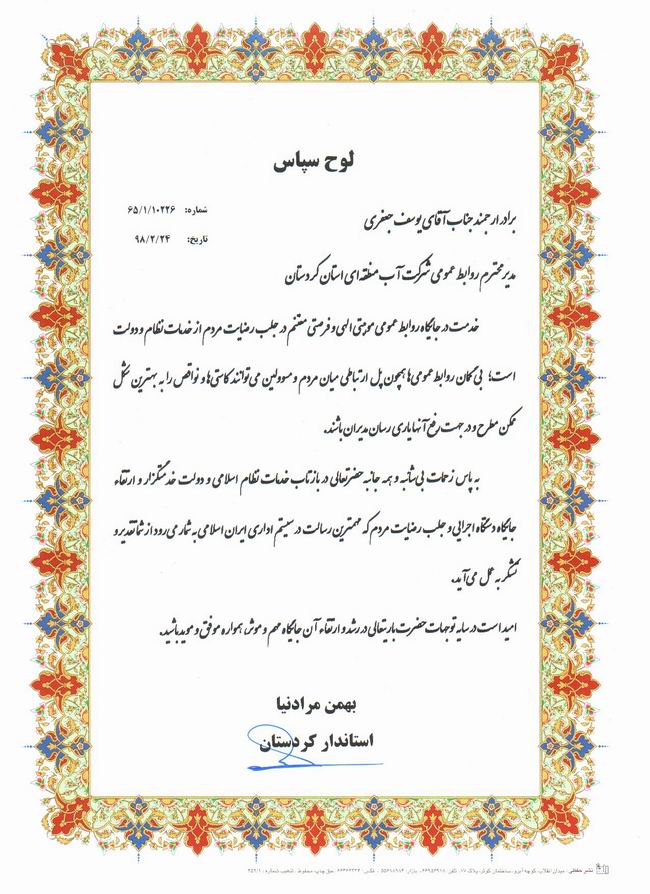 لوح سپاس
شماره: ۶۵/۱/۱۰۲۲۶
برادر ارجمند جناب آقای یوسف جعفری
تاریخ: ۹۸/۲/۲۴
مدیر محترم روابط عمومی شرکت آب منطقه ای استان کردستان
خدمت در جایگاه روابط عمومی موهبتی الهی و فرصتی مغتنم در جلب رضایت مردم از خدمات نظام و دولت
است؛ بی گمان روابط عمومی ها همچون پل ارتباطی میان مردم و مسوولین می توانند کاستی ها و نواقص را به بهترین شکل
ممکن مطرح و در جهت رفع آنها یاری رسان مدیران باشند.
به پاس زحمات بی شائبه و همه جانبه حضرتعالی در بازتاب خدمات نظام اسلامی و دولت خدمتگزار و ارتقاء
جایگاه دستگاه اجرایی و جلب رضایت مردم که مهمترین رسالت در سیستم اداری ایران اسلامی به شمار می رود از شما تقدیر و
تشکر به عمل می آید.
امید است در سایه توجهات حضرت باریتعالی در رشد و ارتقاء آن جایگاه مهم و موثر همواره موفق و موید باشید.
بهمن مرادنیا
استاندار کردستان
نشر حفظی، میدان انقلاب، کوچه آبرو، ساختمان کوثر، پلاک ۱۷، تلفن: ۶۶۹۵۶۹۱۸ ، بازار: ۵۵۶۱۸۹۸۴ ، فکس: ۶۶۴۶۲۳۲۲ ، حق چاپ محفوظ ،